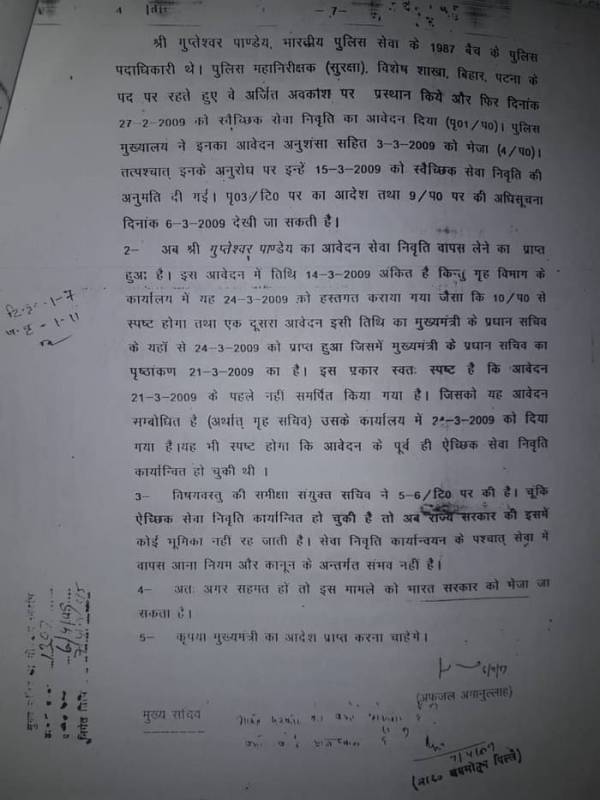 -7-
श्री गुप्तेश्वर पाण्डेय, भारतीय पुलिस सेवा के 1987 बैच के पुलिस
पदाधिकारी थे। पुलिस महानिरीक्षक (सुरक्षा), विशेष शाखा, बिहार, पटना के
पद पर रहते हुए वे अर्जित अवकाश पर प्रस्थान किये और फिर दिनांक
27-2-2009 को स्वैच्छिक सेवा निवृति का आवेदन दिया (पृ01/प0)। पुलिस
मुख्यालय ने इनका आवेदन अनुशंसा सहित 3-3-2009 को भेजा (4/प0)।
तत्पश्चात् इनके अनुरोध पर इन्हें 15-3-2009 को स्वैच्छिक सेवा निवृति की
अनुमति दी गई। पृ03/टि0 पर का आदेश तथा 9/प0 पर की अधिसूचना
दिनांक 6-3-2009 देखी जा सकती है।
2- अब श्री गुप्तेश्वर पाण्डेय का आवेदन सेवा निवृति वापस लेने का प्राप्त
हुआ है। इस आवेदन में तिथि 14-3-2009 अंकित है किन्तु गृह विभाग के
कार्यालय में यह 24-3-2009 को हस्तगत कराया गया जैसा कि 10/प0 से
स्पष्ट होगा तथा एक दूसरा आवेदन इसी तिथि का मुख्यमंत्री के प्रधान सचिव
के यहाँ से 24-3-2009 को प्राप्त हुआ जिसमें मुख्यमंत्री के प्रधान सचिव का
पृष्ठांकण 21-3-2009 का है। इस प्रकार स्वतः स्पष्ट है कि आवेदन
21-3-2009 के पहले नहीं समर्पित किया गया है। जिसको यह आवेदन
सम्बोधित है (अर्थात् गृह सचिव) उसके कार्यालय में को दिया
गया है।यह भी स्पष्ट होगा कि आवेदन के पूर्व ही ऐच्छिक सेवा निवृति
कार्यान्वित हो चुकी थी ।
3- विषयवस्तु की समीक्षा संयुक्त सचिव ने 5-6/टि0 पर की है। चूंकि
ऐच्छिक सेवा निवृति कार्यान्वित हो चुकी है तो अब राज्य सरकार की इसमें
कोई भूमिका नहीं रह जाती है। सेवा निवृति कार्यान्वयन के पश्चात् सेवा में
वापस आना नियम और कानून के अन्तर्गत संभव नहीं है।
4- अतः अगर सहमत हों तो इस मामले को भारत सरकार को भेजा जा
सकता है।
5- कृपया मुख्यमंत्री का आदेश प्राप्त करना चाहेंगे।
(अफजल अमानुल्लाह)
मुख्य सचिव